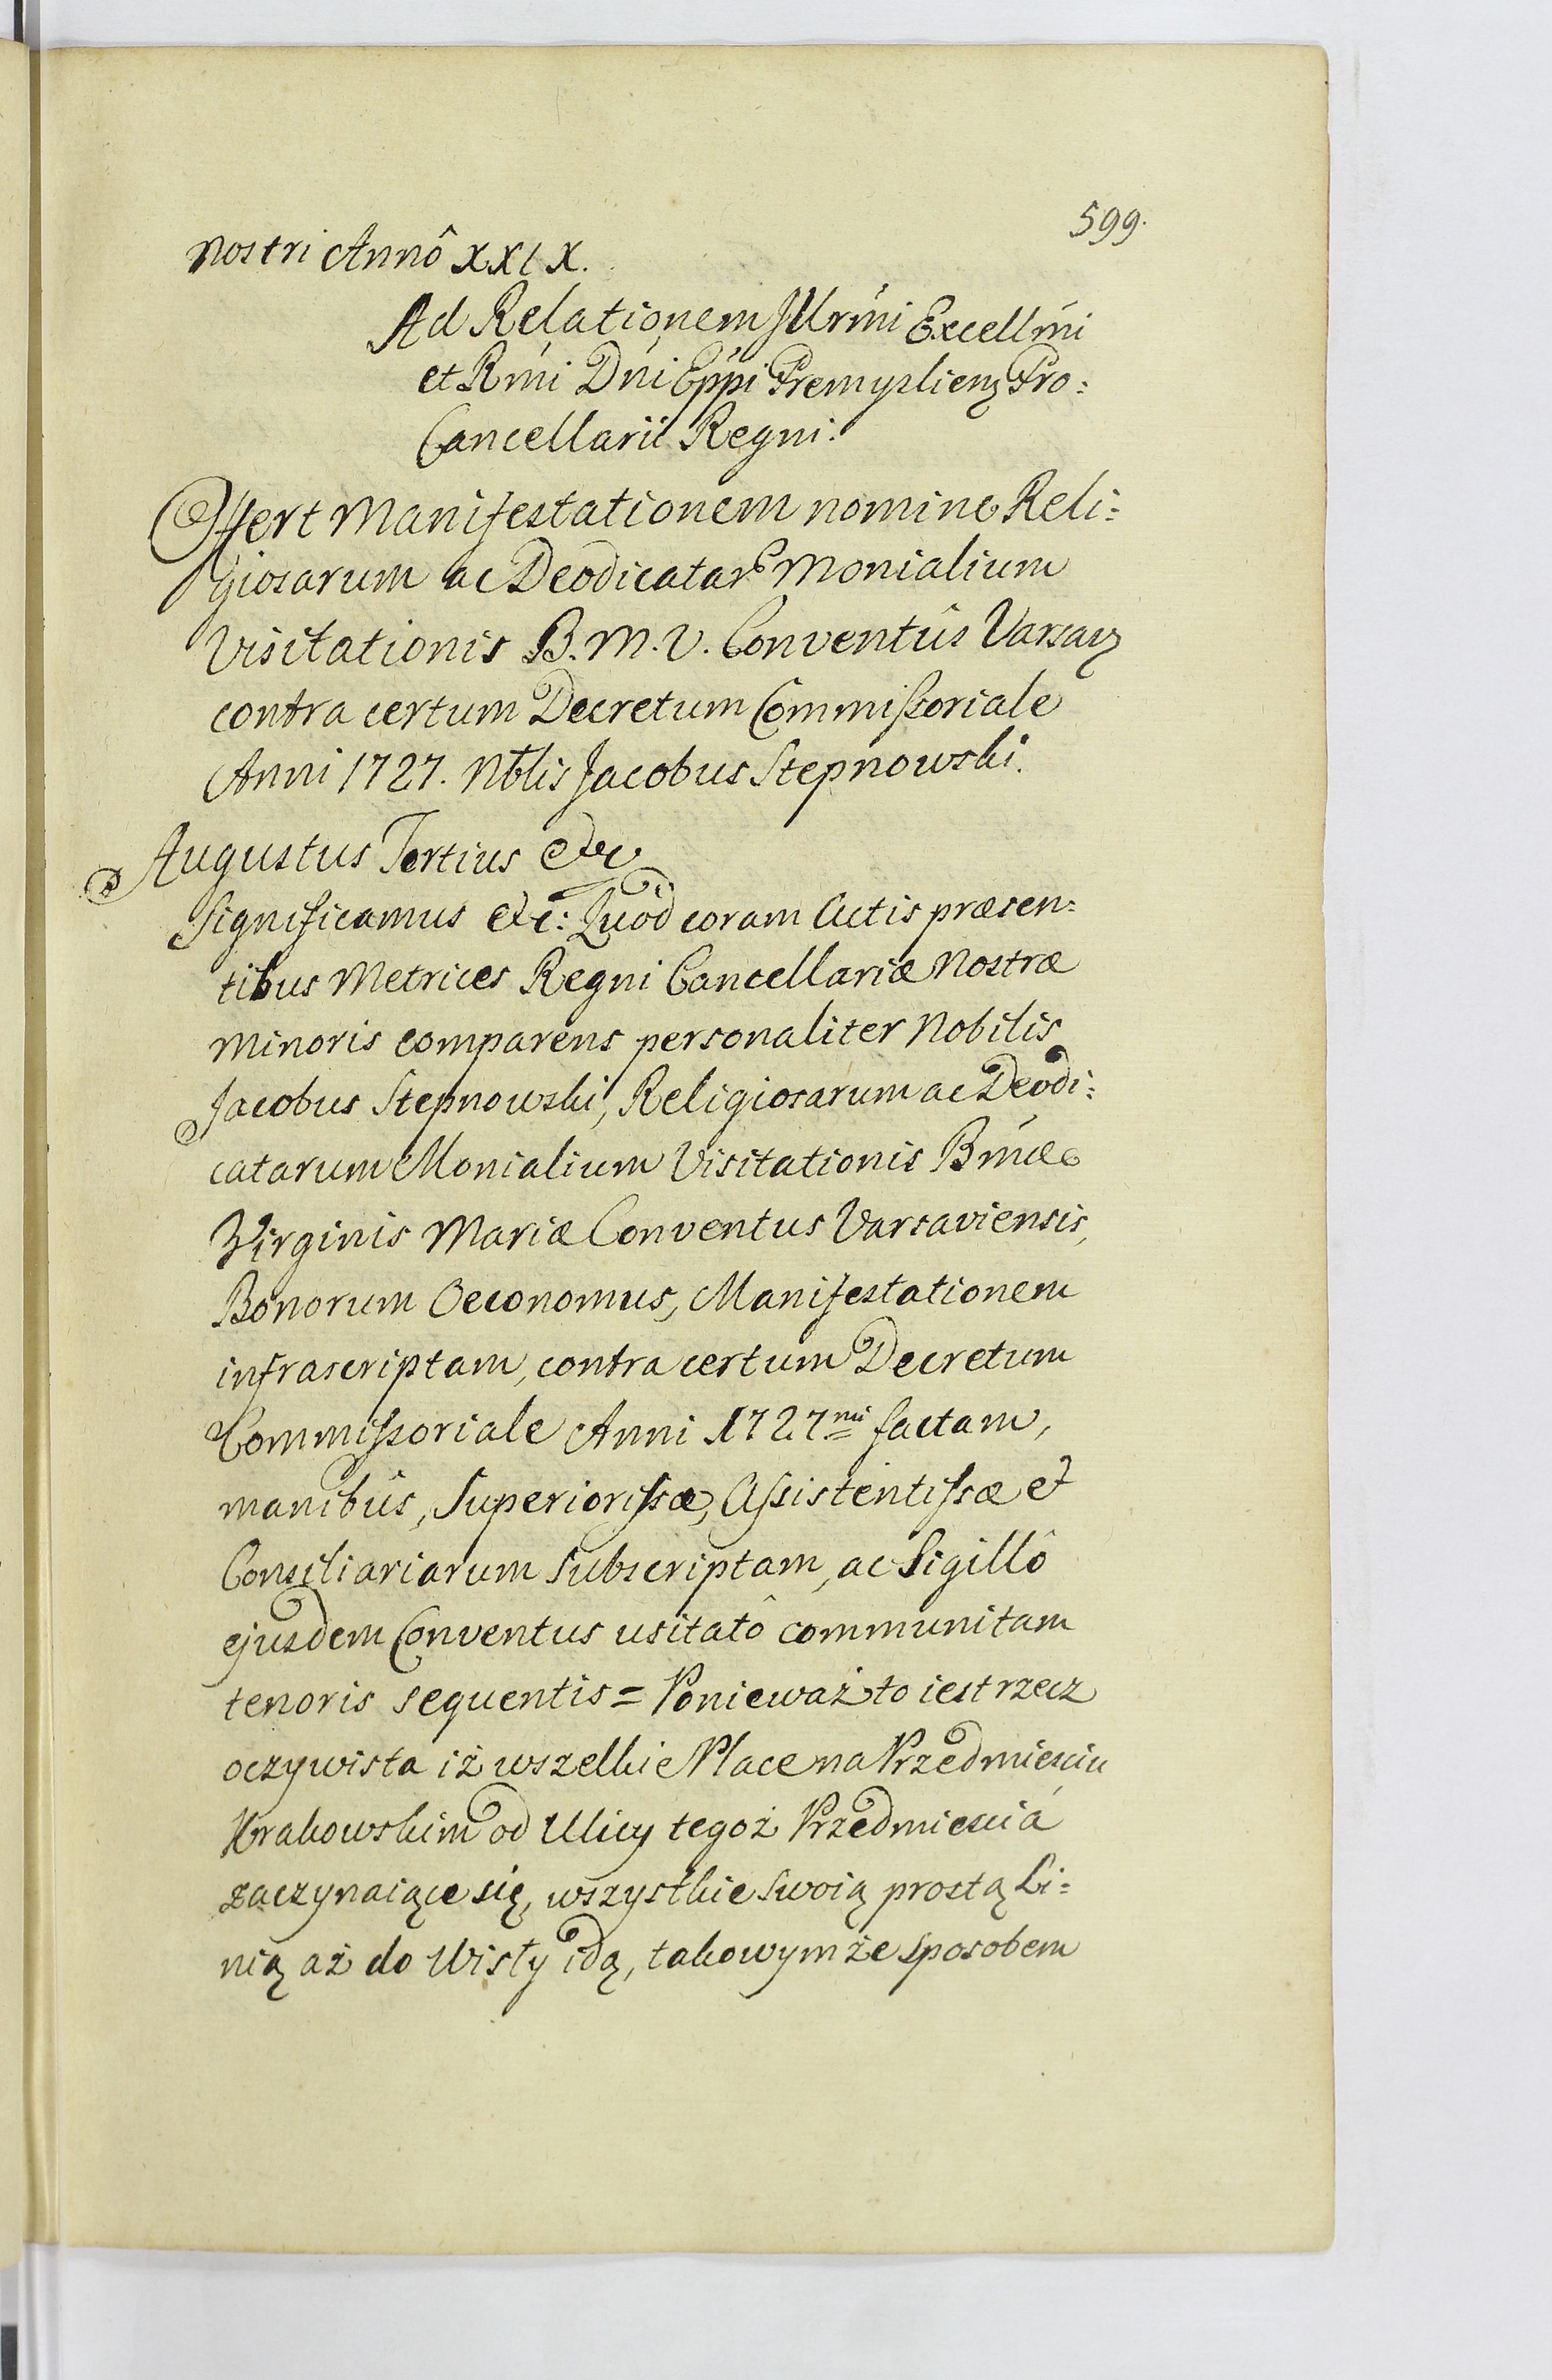 599.
nostri Annô XXIX.
Ad Relationem Jllrmi Excellmi
et Rmi Dni Eppi Premyslienʒ Pro:
Cancellarii Regni.
Offert Manifestationem nomine Reli:
giosarum ac Deodicatar Monialium
Visitationis B. M. V. Conventûs Varsavʒ
contra certum Decretum Commissoriale
Anni 1727. Nblis Jacobus Stepnowski.
Augustus Tertius etc
Significamus etc: Quod coram Actis præsen:
tibus Metrices Regni Cancellariæ Nostræ
Minoris comparens personaliter Nobilis
Jacobus Stepnowski, Religiosarum ac Deodi:
catarum Monialium Visitationis Bmæ
Virginis Mariæ Conventus Varsaviensis,
Bonorum Oeconomus, Manifestationem
infrascriptam, contra certum Decretum
Commissoriale Anni 1727mi factam,
manibûs, Superiorissæ, Assistentissæ et
Consiliariarum subscriptam, ac Sigillô
ejusdem Conventus usitatô communitam
tenoris sequentis = Ponieważ to iest rzecz
oczywista iż wszelkie Place na Przedmiesciu
Krakowskim od Ulicy tegoż Przedmiesciá
zaczynaiące się, wszystkie swoią prostą Li:
nią aż do Wisły idą, takowymże sposobem